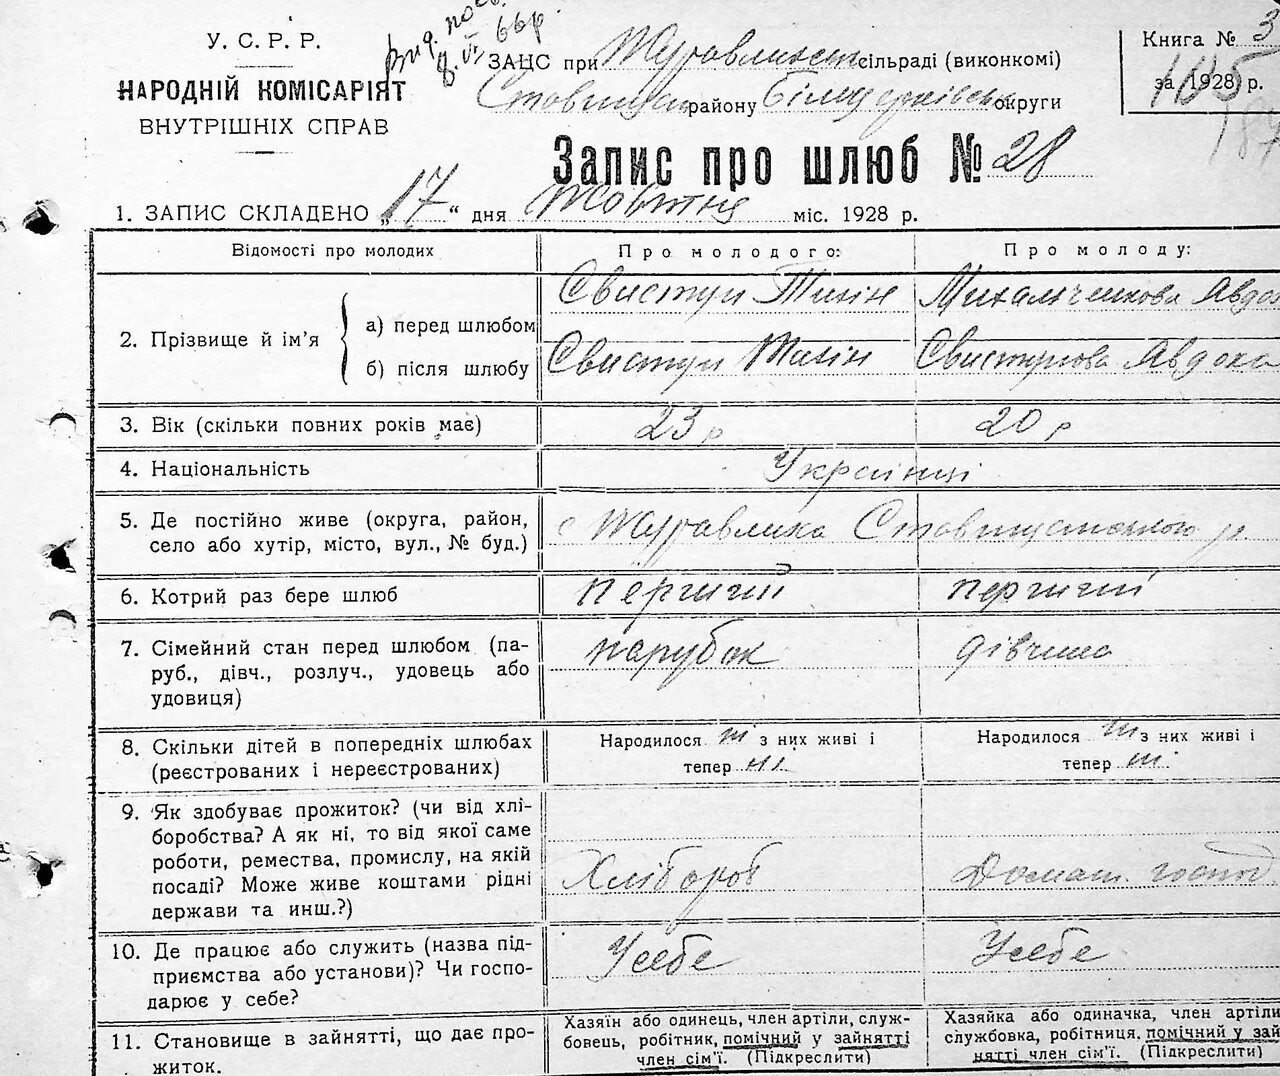 У. С. Р. Р.
НАРОДНІЙ КОМІСАРІЯТ
ВНУТРІШНІХ СПРАВ
66р
ЗАЦС при сільраді (виконкомі)
району Білоцерківської округи
Книга № 3
за 1928 р.
105
187
Запис про шлюб № 28
1. ЗАПИС СКЛАДЕНО „17“ дня Жовтня міс. 1928 р.
Відомості про молодих
Про молодого:
Про молоду:
2. Прізвище й ім'я
а) перед шлюбом
Свистун Тихін
Михальченкова Авдо
б) після шлюбу
Свистун Тихін
Свистунова Авдока
3. Вік (скільки повних років має)
23 р
20 р
4. Національність
Українці
5. Де постійно живе (округа, район,
село або хутір, місто, вул., № буд.)
с Журавлиха Ставищанського р.
6. Котрий раз бере шлюб
первичний
первичний
7. Сімейний стан перед шлюбом (па-
руб., дівч., розлуч., удовець або
удовиця)
парубок
дівчина
8. Скільки дітей в попередніх шлюбах
(реєстрованих і нереєстрованих)
Народилося ні з них живі і
тепер ні
Народилося ні з них живі і
тепер ні
9. Як здобуває прожиток? (чи від хлі-
боробства? А як ні, то від якої саме
роботи, ремества, промислу, на якій
посаді? Може живе коштами рідні
держави та инш.?)
Хлібороб
Домаш. господ.
10. Де працює або служить (назва під-
приємства або установи)? Чи госпо-
дарює у себе?
У себе
У себе
11. Становище в зайнятті, що дає про-
житок.
Хазяїн або одинець, член артіли, служ-
бовець, робітник, помічний у зайнятті
член сім'ї. (Підкреслити)
Хазяйка або одиначка, член артіли
службовка, робітниця, помічний у зай
нятті член сім'ї. (Підкреслити)